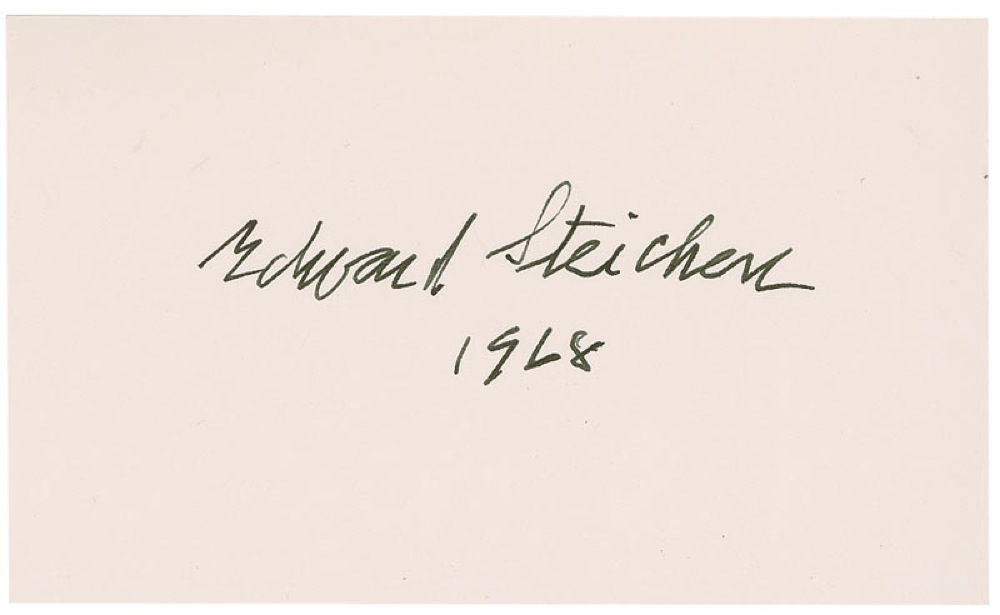 Edward Steichen
1968